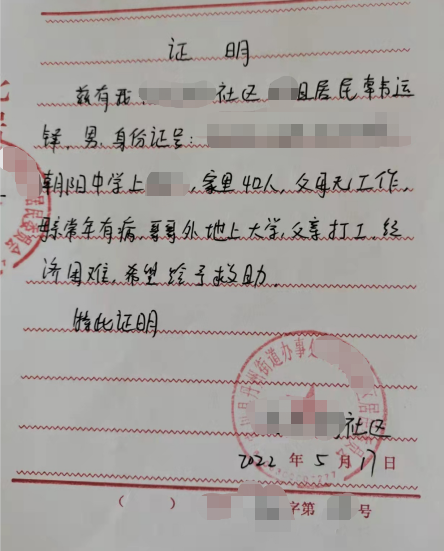 证明
兹有我 社区 组居民韩运
铎,男,身份证号:
朝阳中学上 ,家里4口人,父母无工作,
母亲常年有病,哥哥外地上大学,父亲打工,经
济困难,希望给予救助。
特此证明
川县丹州街道办事处 区居
社区
2022年5月17日
( ) 字第 号